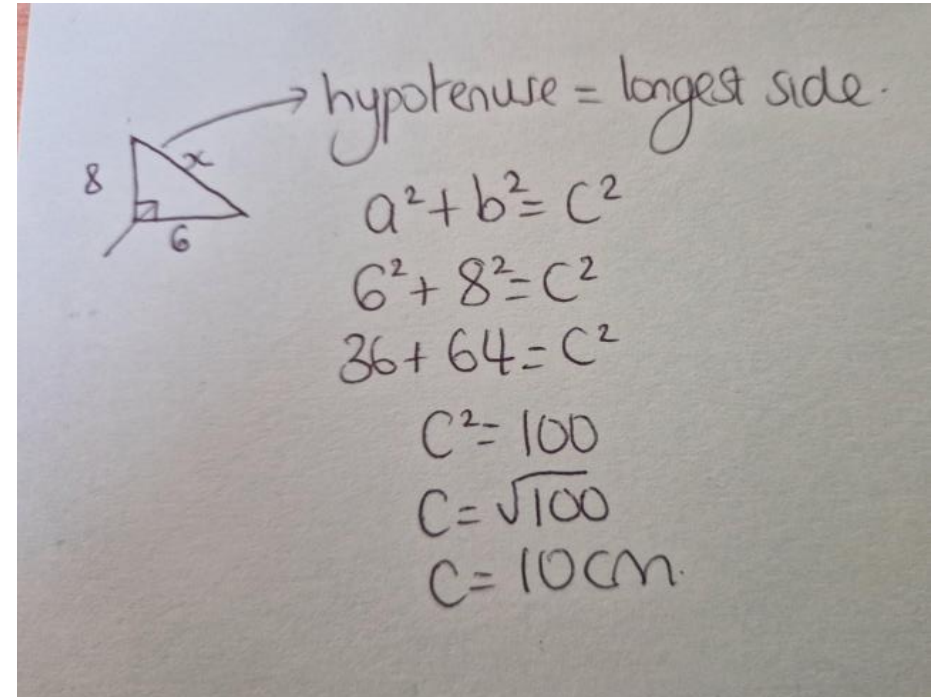 hypotenuse = longest side.
8
x
6
a² + b² = c²
6² + 8² = c²
36 + 64 = c²
c² = 100
c = √100
c = 10cm.